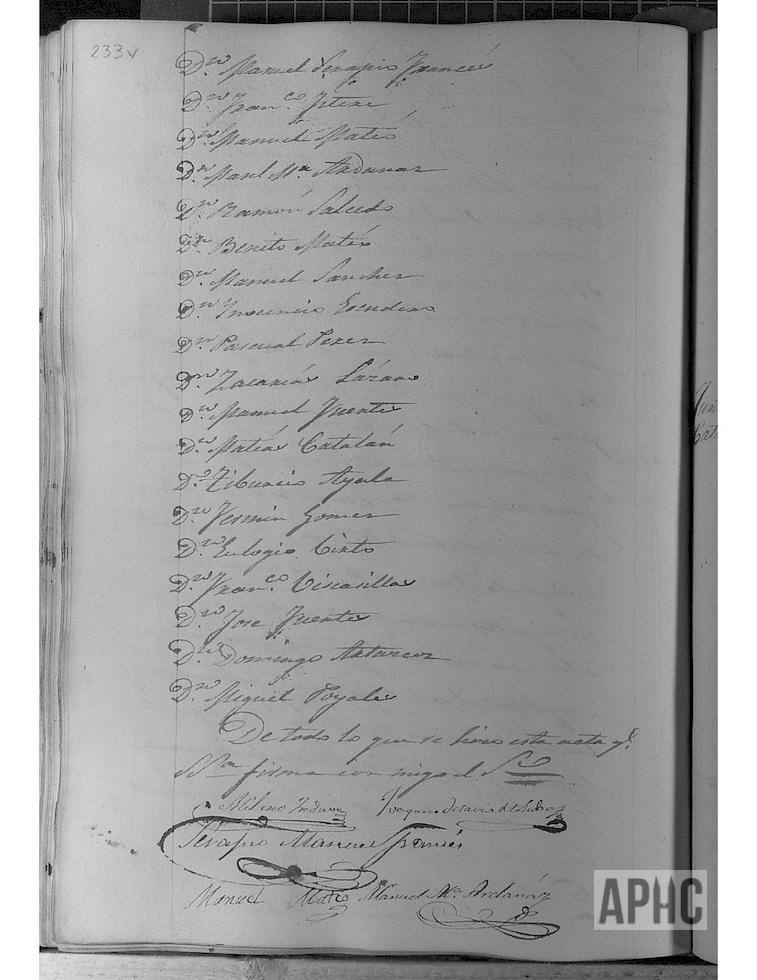 233v
D.n Manuel Serapio Francés
D.n Fran.co Jétere
D.n Manuel Mateo
D.n Manl M.a Andanaz
D.n Ramón Salcedo
D.n Benito Mateo
D.n Manuel Sanchez
D.n Ynocencio Escudero
D.n Pascual Perez
D.n Zacarías Lázaro
D.n Manuel Puente
D.n Matías Catalán
D.n Tiburcio Ayala
D.n Fermin Gomez
D.n Eulogio Cinto
D.n Fran.co Viscasillas
D.n Jose Puente
D.n Domingo
D.n Miguel
De todo lo que se hizo esta acta q.e
S.S.a firma con migo el S
Joaquin Octavio de
Serapio Manuel Francés
Manuel Mateo Manuel M.a Andanáz
APHC